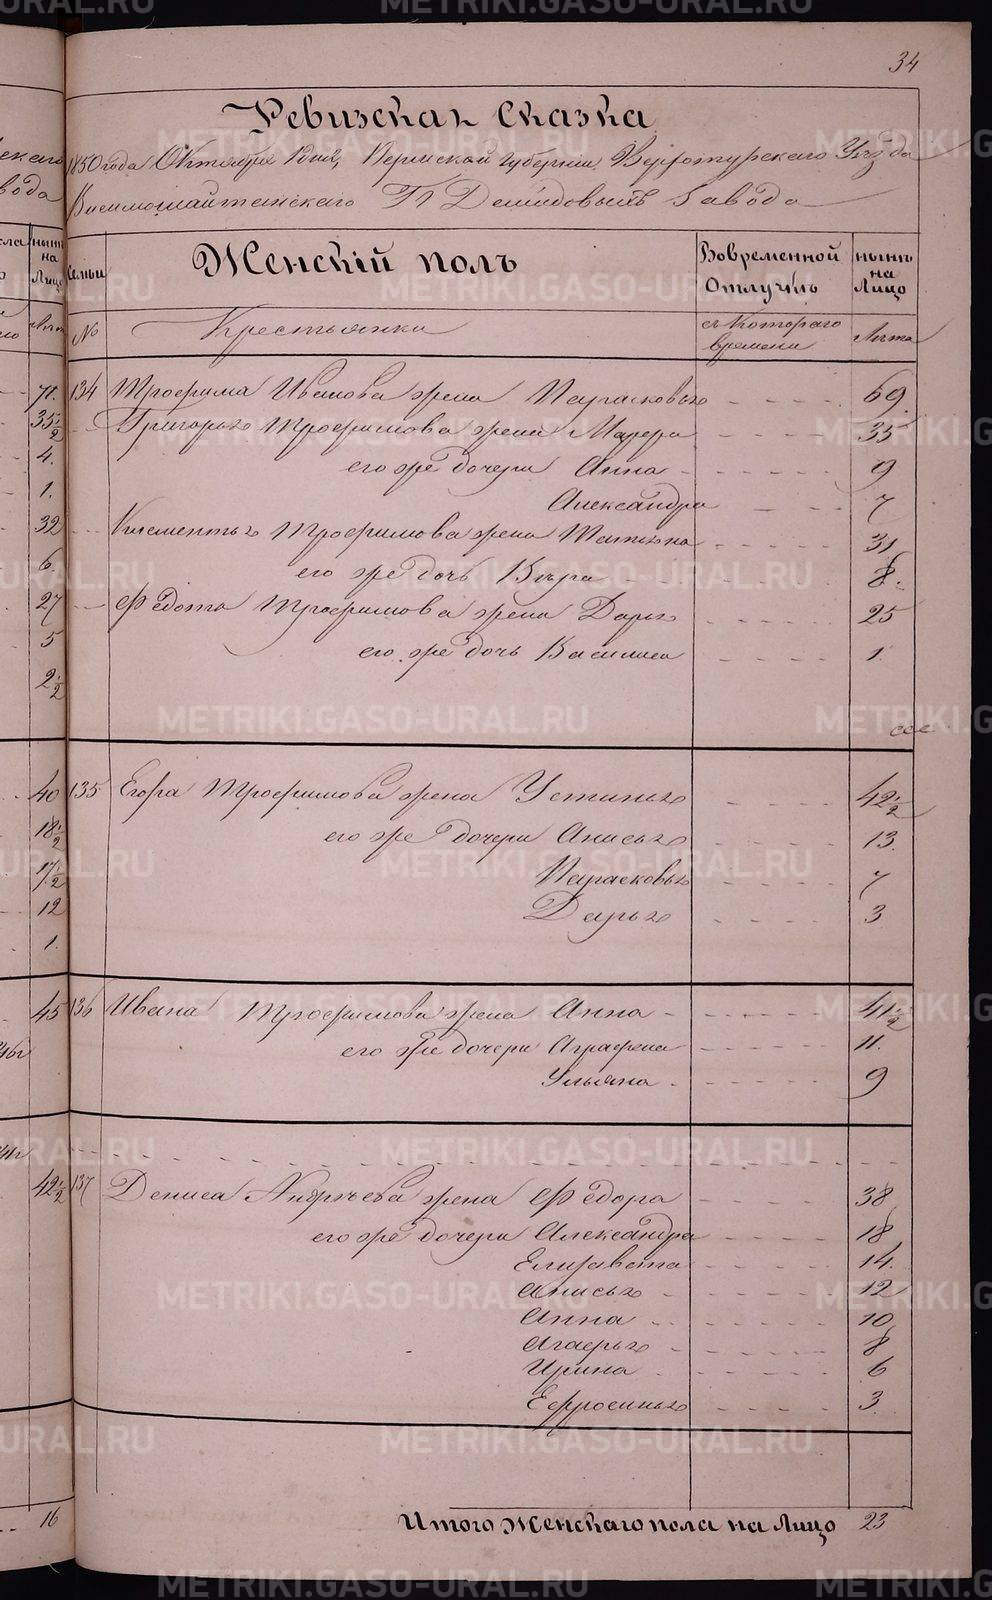 34
Ревизская Сказка
1850 года Октября дня, Пермской губернии Верхотурскаго Уезда
Висимошайтанскаго ГГ Демидовыхъ Завода
Семьи
Женскій полъ
Вовременной Отлучкъ
нынъ на Лицо
№
Крестьянки
съ Котораго времени
Лъта
134 Трофима Иванова жена Парасковья 69.
Григорья Трофимова жена Мавра 35
его же дочери Анна 9
Александра 7
Клементья Трофимова жена Татьяна 31
его же дочь Въра 8.
Федота Трофимова жена Дарья 25
его же дочь Василиса 1.
135 Егора Трофимова жена Устинья 42 1/2
его же дочери Анисья 13.
Парасковья 7
Дарья 3
136 Ивана Трофимова жена Анна 41 1/2
его же дочери Аграфена 11.
Ульяна 9
137 Дениса Андръева жена Федора 38
его же дочери Александра 18
Елизавета 14.
Анисья 12
Анна 10
Агафья 8
Ирина 6
Ефросинья 3
Итого Женскаго пола на Лицо 23
71.
35 1/2
4.
1.
32
6.
27
5
2 1/2
40
18 1/2
17 1/2
12
1.
45
42 1/2
16
METRIKI.GASO-URAL.RU